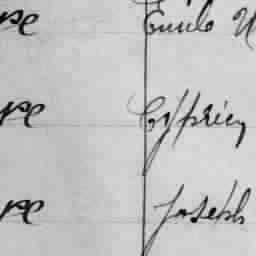 pe Emile
pe Cyprien
pe Joseph